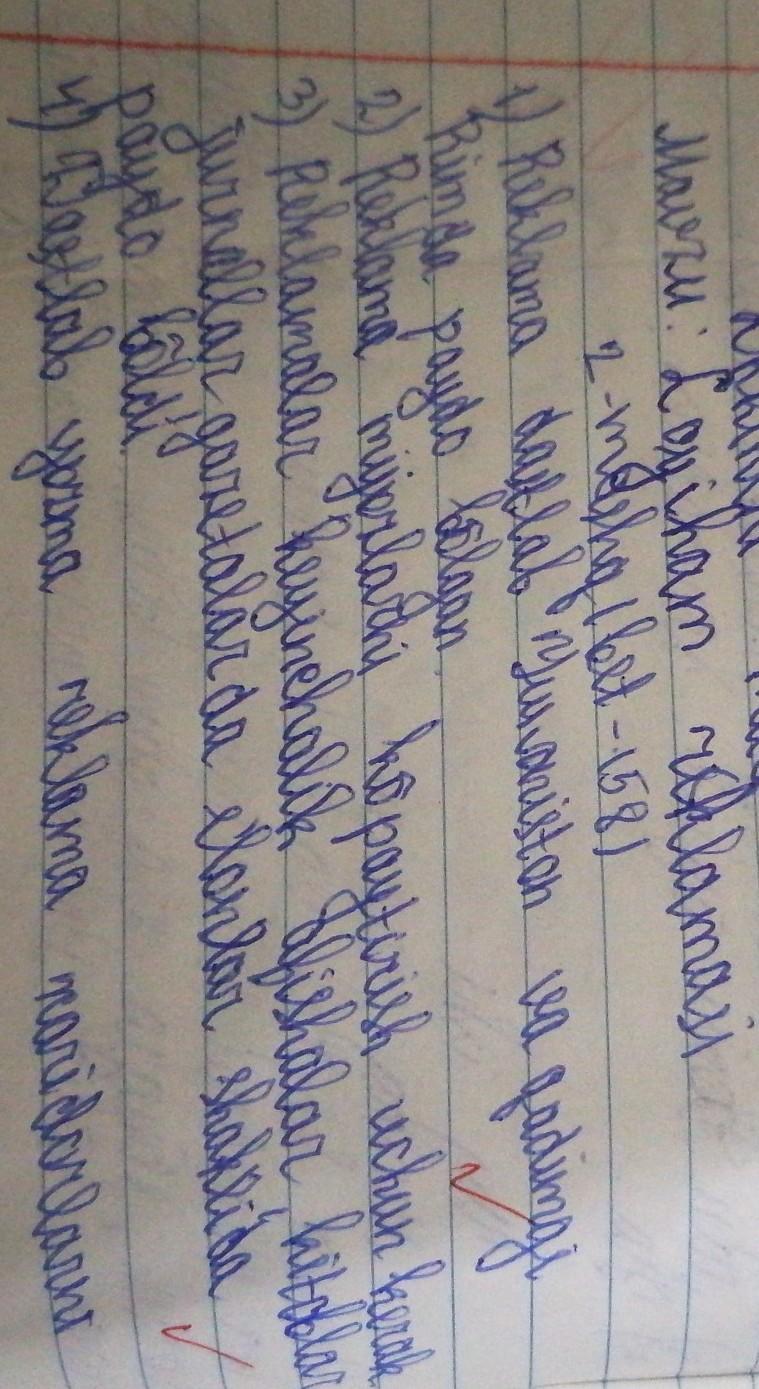 Mavzu: Loyiham reklamasi
2-mashq (bet-158)
1) Reklama dastlab Yunoniston va qadimgi
Rimda paydo bõlgan.
2) Reklama mijozlarni kõpaytirish uchun kerak
3) Reklamalar keyinchalik afishalar, kitoblar
jurnallar-gazetalarda e'lonlar shaklida
paydo bõldi.
4) Dastlab yozma reklama xaridorlarni